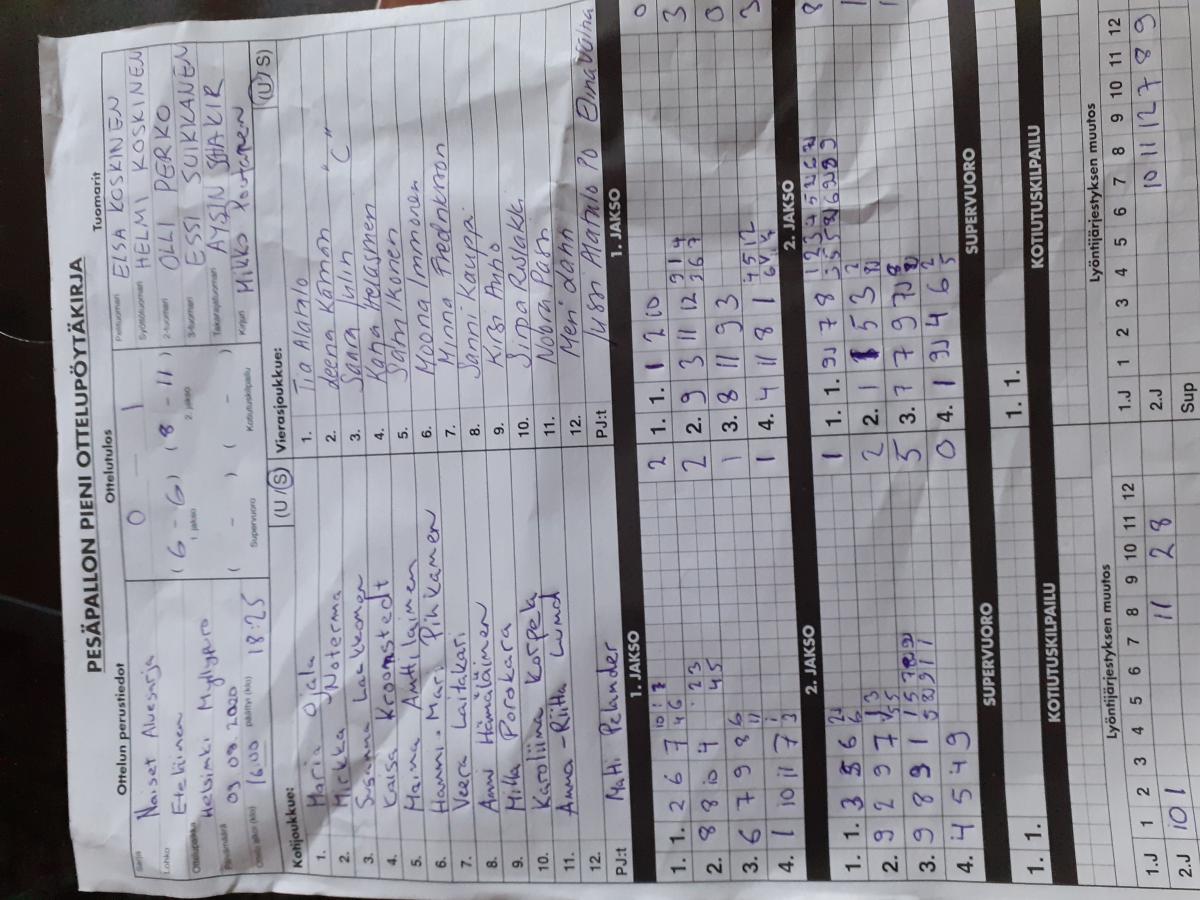 PESÄPALLON PIENI OTTELUPÖYTÄKIRJA
Ottelun perustiedot
Ottelutulos
Tuomarit
Sarja Naiset Aluesarja
Lohko Eteläinen
Ottelupaikka Helsinki Myllypuro
Päivämäärä 09 08 2020
Ottelu alkoi (klo) 16:00 päättyi (klo) 18:25
0 — 1
(6 - 6) (8 - 11)
1. jakso 2. jakso
( - ) ( - )
Supervuoro Kotiutuskilpailu
Pelituomari ELSA KOSKINEN
Syöttötuomari HELMI KOSKINEN
2-tuomari OLLI PERKO
3-tuomari ESSI SUIKKANEN
Takarajatuomari AYSIN SHAKIR
Kirjuri Mikko Poutanen
Kotijoukkue: (U/S)
1. Maria Ojala
2. Mirkka Noterma
3. Susanna Laakkonen
4. Kaisa Kroonstedt
5. Maina Anttilainen
6. Hanna-Mari Pihkanen
7. Veera Laitakari
8. Anni Hämäläinen
9. Milka Porokara
10. Karoliina Korpela
11. Anna-Riitta Lumd
12.
PJ:t Matti Pelander
Vierasjoukkue: (U/S)
1. Tia Alatalo
2. Leena Kämön "C"
3. Saara Iulin
4. Kaija Heiskanen
5. Sahi Ikonen
6. Moona Immonen
7. Minna Fredrikson
8. Sanni Kauppi
9. Kirsi Anhjo
10. Sirpa Reijakka
11. Noora Pasn
12. Meri Lahn
PJ:t Jussi Alatalo PO Elina Vainha
1. JAKSO
1. 1. 2 6 7 7 2
2. 8 8 10 4 2
3. 6 7 9 8 1
4. 1 10 11 7 1
1. JAKSO
1. 1. 1 2 10 0
2. 9 3 11 12 3
3. 8 11 9 3 0
4. 4 11 8 1 3
2. JAKSO
1. 1. 3 5 6 1
2. 9 2 9 7 2
3. 9 8 9 1 5
4. 4 5 4 9 0
2. JAKSO
1. 1. 9 7 8 8
2. 1 1 5 3 1
3. 7 7 9 1
4. 1 4 6
SUPERVUORO
SUPERVUORO
1. 1.
1. 1.
KOTIUTUSKILPAILU
KOTIUTUSKILPAILU
Lyöntijärjestyksen muutos
1.J 1 2 3 4 5 6 7 8 9 10 11 12
2.J 10 1 11 2 8
Lyöntijärjestyksen muutos
1.J 1 2 3 4 5 6 7 8 9 10 11 12
2.J 10 11 12 7 8 9
Sup